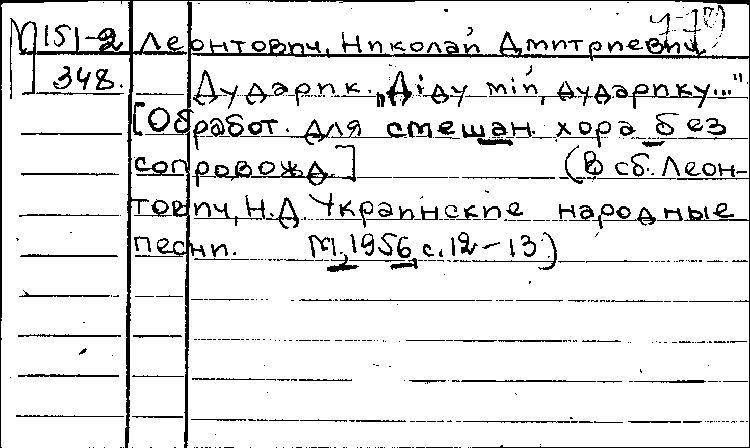 М151-2 Леонтович, Николай Дмитриевич
348. Дударик. „Діду мій, дударику..."
[Обработ. для смешан. хора без
сопровожд.] (В сб. Леон-
тович, Н.Д. Украинские народные
песни. М, 1956, с. 12-13)